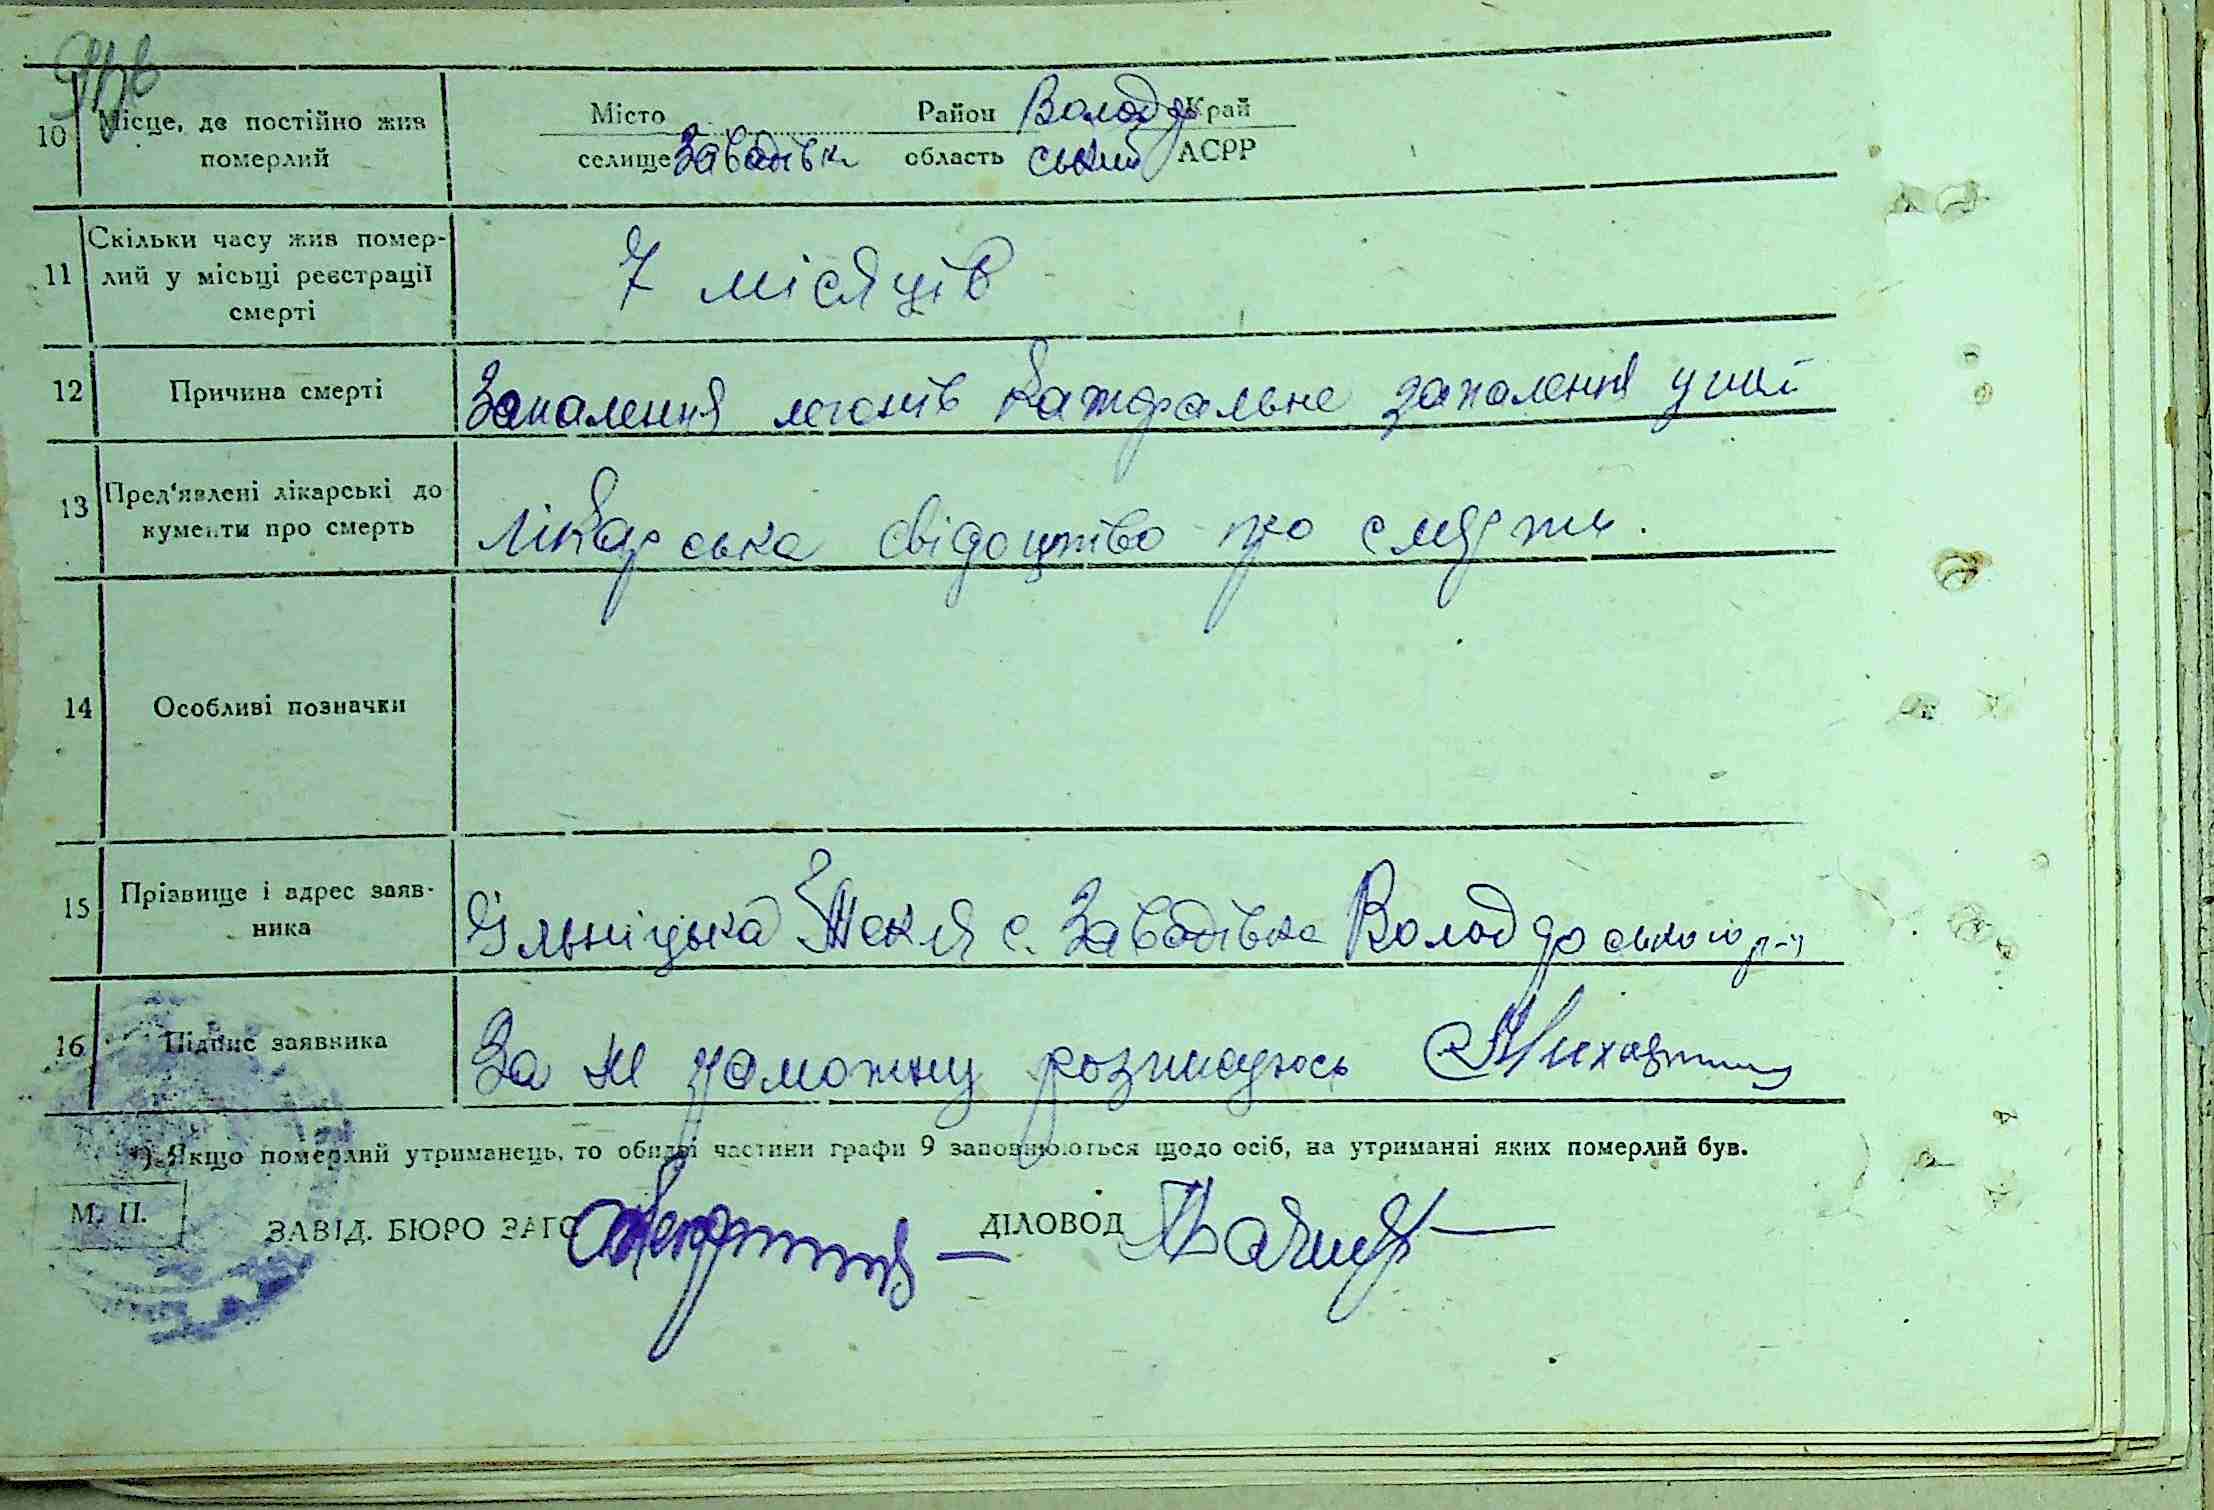 10 Місце, де постійно жив Місто Район Володар Край
померлий селище Завадівка область ський АСРР
Скільки часу жив помер-
11 лий у місьці реєстрації 7 місяців
смерті
12 Причина смерті Запалення легенів катаральне запалення ушей
13 Пред'явлені лікарські до
кументи про смерть лікарська свідоцтво про смерть.
14 Особливі позначки
15 Прізвище і адрес заяв-
ника Ільніцька Текля с. Завадівка Володарського р-н
16 Підпис заявника За не граможну розписуюсь
*) Якщо померлий утриманець, то обидві частини графи 9 заповнюються щодо осіб, на утриманні яких померлий був.
М. П.
ЗАВІД. БЮРО ЗАГС ДІЛОВОД